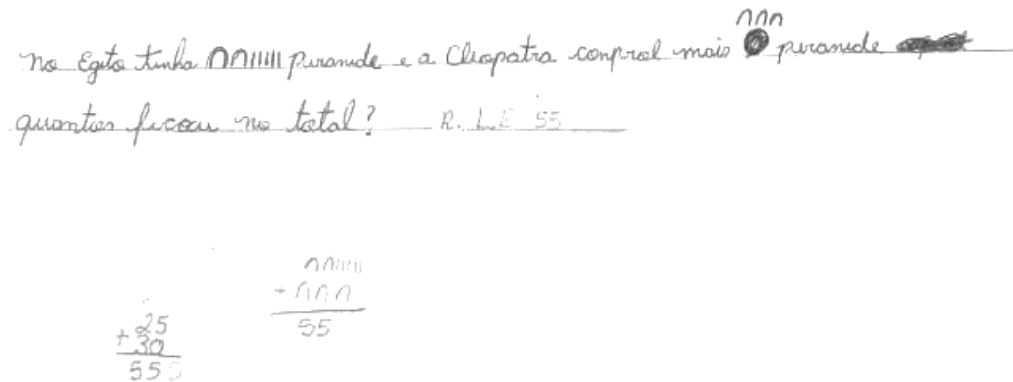 ∩∩∩
no Egito tinha ∩∩IIIII piramide e a Cleopatra conprol mais piramide
quantas ficou no total? R. L.E 55
∩∩IIIII
+ ∩∩∩
55
25
+ 30
55